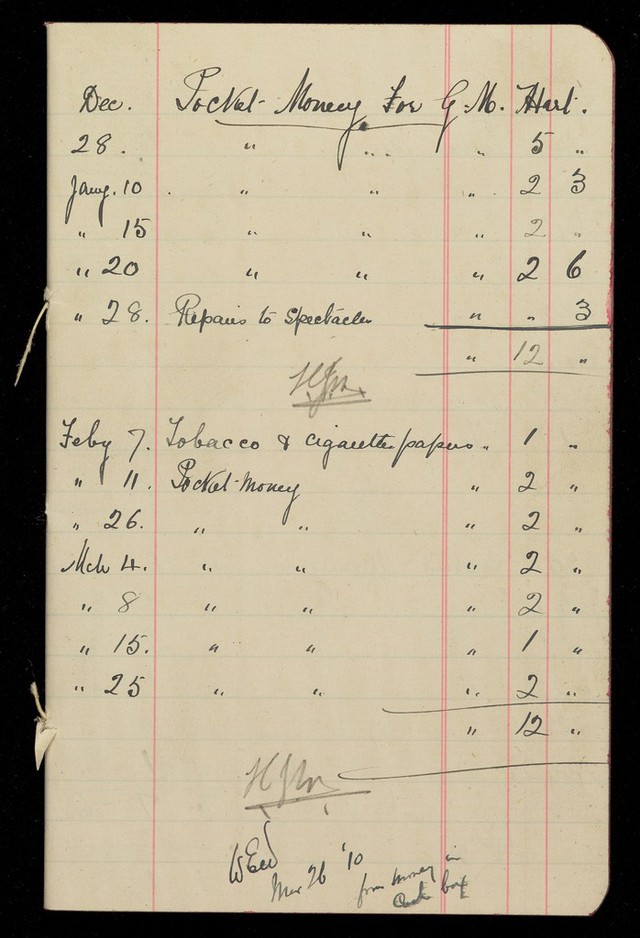 Dec. Pocket Money For G. M. Hart.
28. " " " 5 "
Jany. 10 . " " " 2 3
" 15 " " " 2 "
" 20 " " " 2 6
" 28. Repairs to Spectacles " " 3
" 12 "
Feby 7. Tobacco & cigarette papers " 1 "
" 11. Pocket-Money " 2 "
" 26. " " " 2 "
Mch 4. " " " 2 "
" 8 " " " 2 "
" 15. " " " 1 "
" 25 " " " 2 "
" 12 "
Mar 26 '10
from money in
Cash box